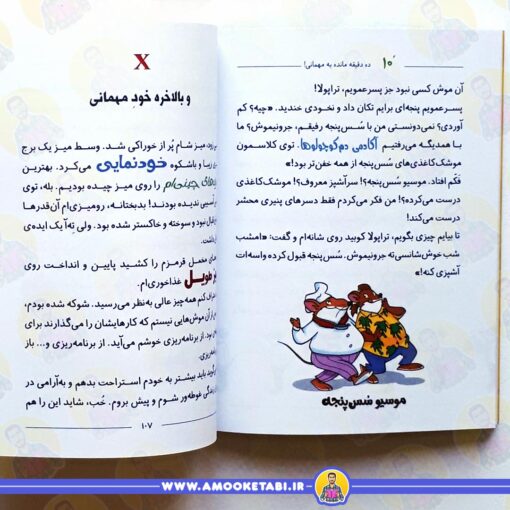 ۱۰' ده دقیقه مانده به مهمانی!
آن موش کسی نبود جز پسرعمویم، تراپولا!
پسرعمویم پنجه‌ای برایم تکان داد و نخودی خندید. «چیه؟ کم
آوردی؟ نمی‌دونستی من با شس‌پنجه رفیقم، جرونیموش؟ ما
با همدیگه می‌رفتیم آکادمی دم‌کوچولوها. توی کلاسمون
موشک‌کاغذی‌های شس‌پنجه از همه خفن‌تر بود!»
فکّم افتاد. موسیو شس‌پنجه؟! سرآشپز معروف؟! موشک‌کاغذی
درست می‌کرده؟! من فکر می‌کردم فقط دسرهای پنیری محشر
درست می‌کند!
تا بیایم چیزی بگویم، تراپولا کوبید روی شانه‌ام و گفت: «امشب
شب خوش‌شانسی‌ته جرونیموش. شس‌پنجه قبول کرده واسه‌ات
آشپزی کنه!»
موسیو شس‌پنجه
X
و بالاخره خودِ مهمانی
میز شام پُر از خوراکی شد. وسط میز یک برج
زیبا و باشکوه خودنمایی می‌کرد. بهترین
چینی‌ام را روی میز چیده بودیم. بله، توی
آسیبی ندیده بودند! بدبختانه، رومیزی‌ام آن‌قدرها
نبود و سوخته و خاکستر شده بود. ولی تِه‌آ یک ایده‌ی
داشت.
مخمل قرمزم را کشید پایین و انداخت روی
طویل غذاخوری‌ام.
کنم همه‌چیز عالی به‌نظر می‌رسید. شوکه شده بودم،
از آن موش‌هایی نیستم که کارهایشان را می‌گذارند برای
بود. از برنامه‌ریزی خوشم می‌آید. از برنامه‌ریزی و... باز
باید بیشتر به خودم استراحت بدهم و به‌آرامی در
زندگی غوطه‌ور شوم و پیش بروم. خُب، شاید این را هم
۱۰۷
WWW.AMOOKETABI.IR